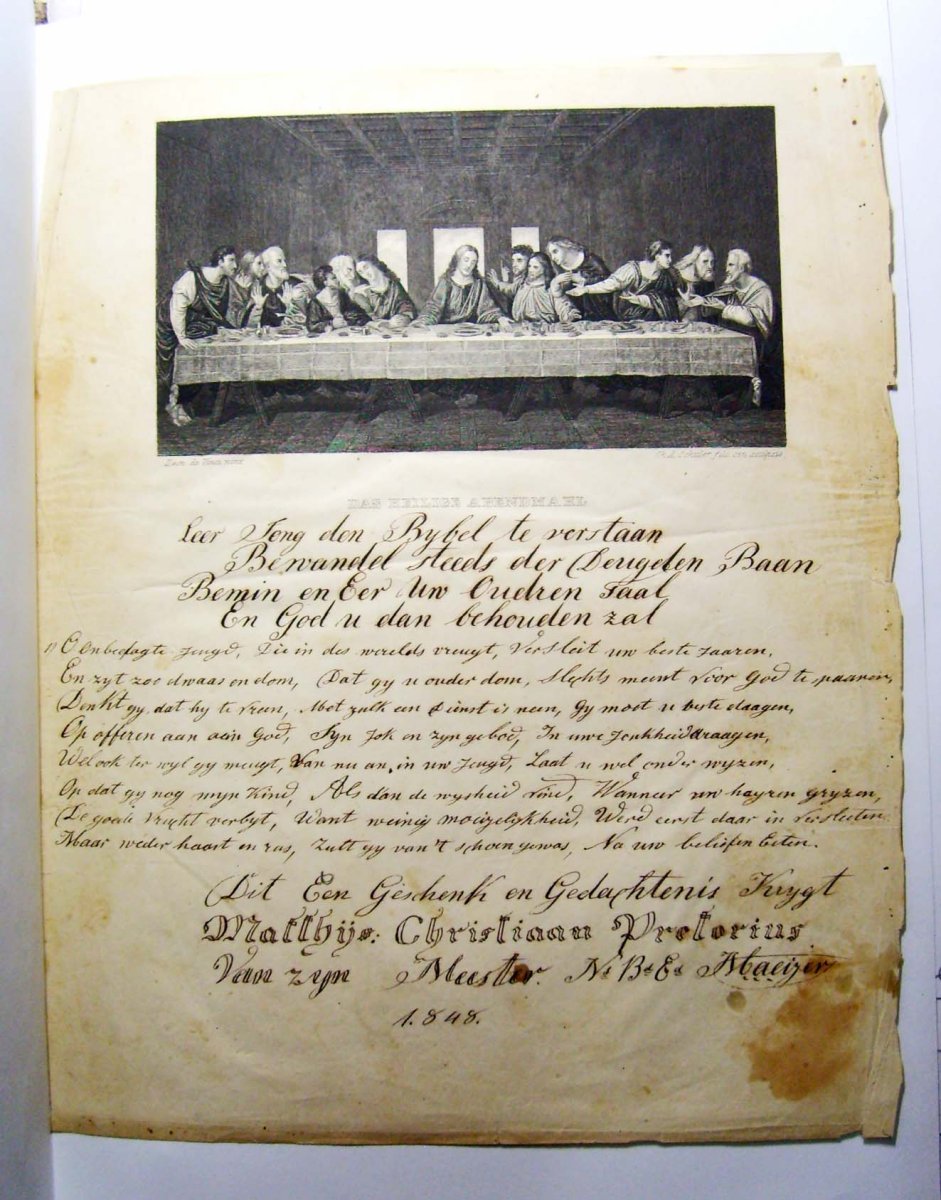 DAS HEILIGE ABENDMAHL
Leer Jong den Bybel te verstaan
Bewandel steeds der Deugden Baan
Bemin en Eer Uw Oudren Taal
En God u dan behouden zal
O Onbedagte Jeugd, Die in des werelds vreugt, Versleit uw beste Jaaren,
En zyt zoo dwaas en dom, Dat gy u ouder dom, Slechts meent voor God te spaaren,
Denkt gy, dat hy te vreen, Met zulk een dienst is neen, Gy moet u beste daagen,
Op offeren aan God, Zyn Jok en zyn gebod, In uwe Jonkheid draagen,
Wel ook ter wyl gy meugt, Van nu an, in uw Jeugd, Laat u wel onder wyzen,
Op dat gy nog myn Kind, Als dan de wysheid vind, Wanneer uw hayren gryzen,
De goede vrucht verbyt, Want weinig moeijelijkheid, Werd eerst daar in versleeten
Maar weder haast en ras, Zult gy van't schoen gewas, Na uw beliefen Eeten.
Dit Een Geschenk en Gedachtenis Krygt
Matthys: Christiaan Pretorius
Van zyn Meester. Ns Bs Es Maeijer
1.848.